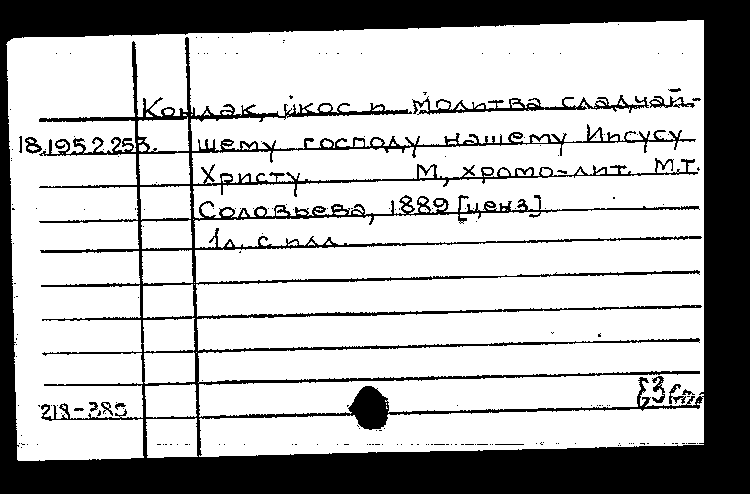 Кондак, икос и молитва сладчай-
18.195.2.253. шему господу нашему Иисусу
Христу. М., хромо-лит. М.Т.
Соловьева, 1889 [ценз]
1л. с илл.
218-385